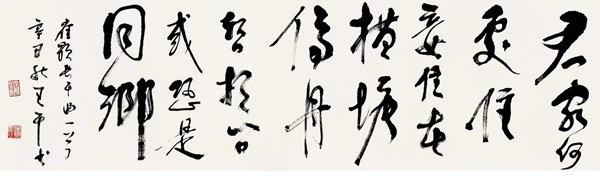 君家何
處住
妾住在
橫塘
停舟
暫借問
或恐是
同鄉
崔顥長干曲一首
辛丑秋
書